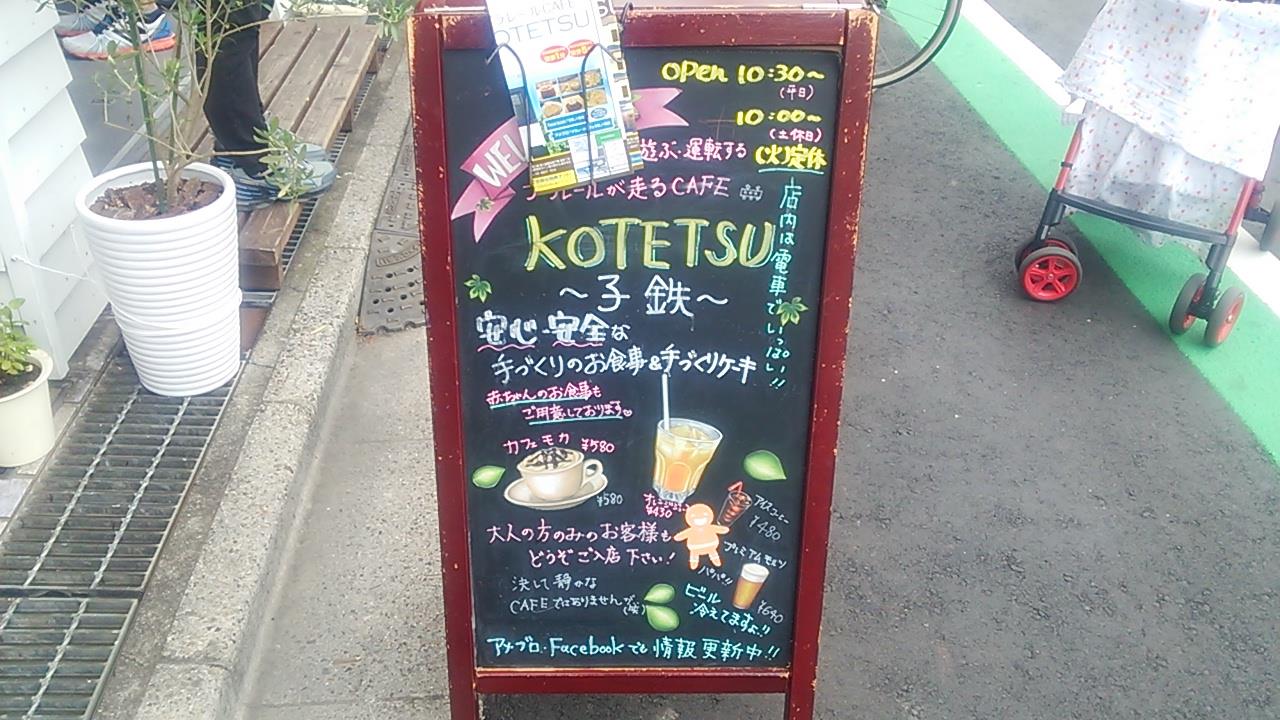 レールCAFE
OTETSU
OPen 10:30～
(平日)
10:00～
(土休日)
(火)定休
WEL
遊ぶ・運転する
プラレールが走るCAFE
店内は電車でいっぱい!!
KOTETSU
～子鉄～
安心・安全な
手づくりのお食事&手づくりケーキ
赤ちゃんのお食事も
ご用意しております
カフェモカ ¥580
¥580
オレンジジュース
¥430
アイスコーヒー
¥480
大人の方のみのお客様も
どうぞご入店下さい!
プレミアムモルツ
パパ!!
¥640
ビール
冷えてますよ!!
決して静かな
CAFEではありませんが、(笑)
アメブロ・Facebookでも情報更新中!!